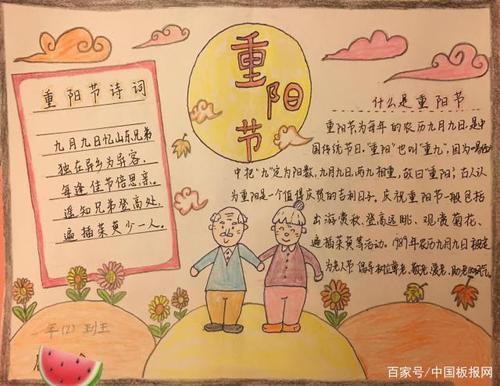 重阳节
重阳节诗词
九月九日忆山东兄弟
独在异乡为异客,
每逢佳节倍思亲。
遥知兄弟登高处,
遍插茱萸少一人。
什么是重阳节
重阳节为每年的农历九月九日,是中
国传统节日。"重阳"也叫"重九",因为《易经》
中把"九"定为阳数,九月九日,两九相重,故曰"重阳";古人认
为重阳是一个值得庆贺的吉利日子。庆祝重阳节一般包括
出游赏秋、登高远眺、观赏菊花、
遍插茱萸等活动。1989年农历九月九日被定
为老人节 倡导树立尊老、敬老、爱老、助老的风气
一年(2)班王
百家号/中国板报网